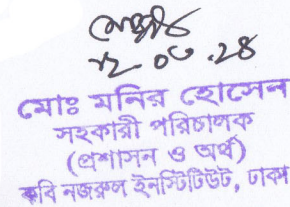 ১২.০৮.২৪
মোঃ মনির হোসেন
সহকারী পরিচালক
(প্রশাসন ও অর্থ)
কবি নজরুল ইনস্টিটিউট, ঢাকা